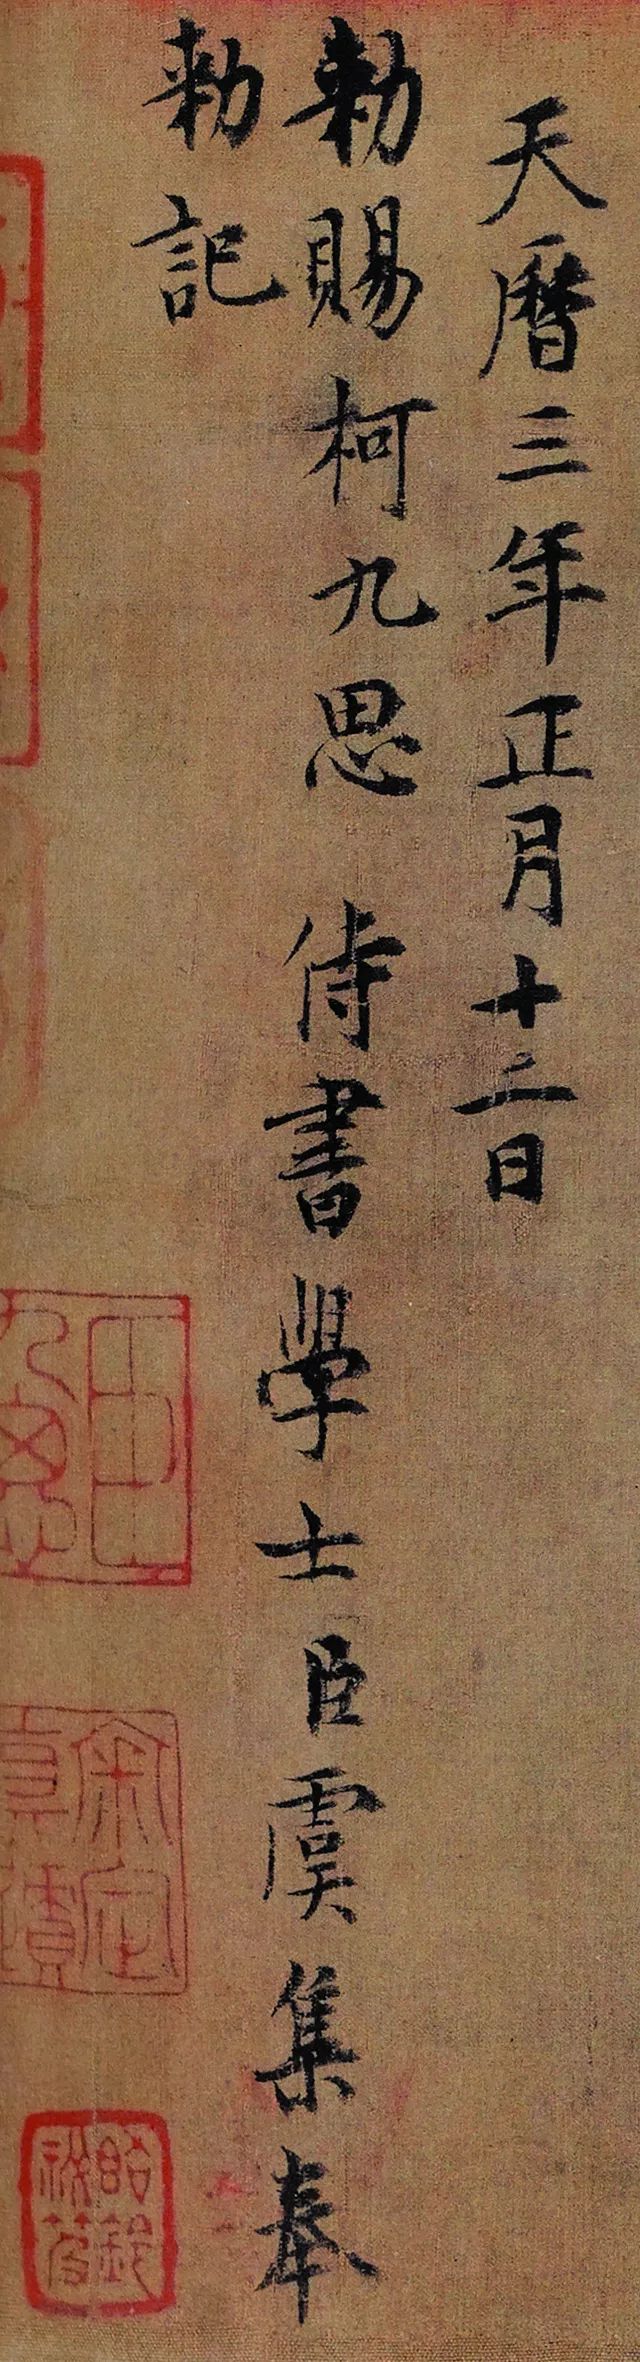 天曆三年正月十二日
勑賜柯九思 侍書學士臣虞集奉
勑記